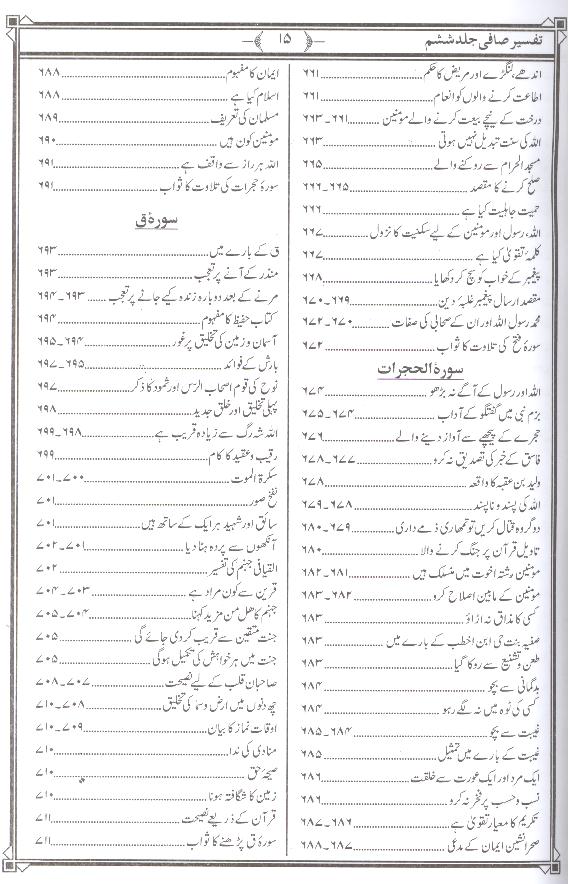 تفسیر صافی جلد ششم
﴿۱۵﴾
اندھے، لنگڑے اور مریض کا حکم ۶۶۱
اطاعت کرنے والوں کو انعام ۶۶۱
درخت کے نیچے بیعت کرنے والے مومنین ۶۶۱۔۶۶۳
اللہ کی سنت تبدیل نہیں ہوتی ۶۶۳
مسجد الحرام سے روکنے والے ۶۶۵
صلح کرنے کا مقصد ۶۶۵۔۶۶۶
حمیت جاہلیت کیا ہے ۶۶۶
اللہ، رسول اور مومنین کے لیے سکینت کا نزول ۶۶۷
کلمۂ تقویٰ کیا ہے ۶۶۷
پیغمبر کے خواب کو سچ کر دکھایا ۶۶۸
مقصد ارسال پیغمبر غلبۂ دین ۶۶۹۔۶۷۰
محمد رسول اللہ اور ان کے صحابی کی صفات ۶۷۰۔۶۷۲
سورۂ فتح کی تلاوت کا ثواب ۶۷۲
سورۃ الحجرات
اللہ اور رسول کے آگے نہ بڑھو ۶۷۴
بزم نبی میں گفتگو کے آداب ۶۷۴۔۶۷۵
حجرے کے پیچھے سے آواز دینے والے ۶۷۶
فاسق کے خبر کی تصدیق نہ کرو ۶۷۷۔۶۷۸
ولید بن عقبہ کا واقعہ ۶۷۸
اللہ کی پسند و ناپسند ۶۷۸۔۶۷۹
دو گروہ قتال کریں تو تمھاری ذمے داری ۶۷۹۔۶۸۰
تاویل قرآن پر جنگ کرنے والا ۶۸۰
مومنین رشتہ اخوت میں منسلک ہیں ۶۸۱۔۶۸۲
مومنین کے مابین اصلاح کرو ۶۸۲۔۶۸۳
کسی کا مذاق نہ اڑاؤ ۶۸۳
صفیہ بنت حی ابن اخطب کے بارے میں ۶۸۳
طعن و تشنیع سے روکا گیا ۶۸۳
بدگمانی سے بچو ۶۸۴
کسی کی ٹوہ میں نہ لگے رہو ۶۸۴
غیبت سے بچو ۶۸۴۔۶۸۵
غیبت کے بارے میں تمثیل ۶۸۵
ایک مرد اور ایک عورت سے خلقت ۶۸۶
نسب و حسب پر فخر نہ کرو ۶۸۶
تکریم کا معیار تقویٰ ہے ۶۸۶۔۶۸۷
صحرا نشین ایمان کے مدعی ۶۸۷۔۶۸۸
ایمان کا مفہوم ۶۸۸
اسلام کیا ہے ۶۸۸
مسلمان کی تعریف ۶۸۹
مومنین کون ہیں ۶۹۰
اللہ ہر راز سے واقف ہے ۶۹۱
سورۂ حجرات کی تلاوت کا ثواب ۶۹۱
سورۂ ق
ق کے بارے میں ۶۹۳
منذر کے آنے پر تعجب ۶۹۳
مرنے کے بعد دوبارہ زندہ کیے جانے پر تعجب ۶۹۳۔۶۹۴
کتاب حفیظ کا مفہوم ۶۹۴
آسمان و زمین کی تخلیق پر غور ۶۹۴۔۶۹۵
بارش کے فوائد ۶۹۵۔۶۹۷
نوح کی قوم اصحاب الرّس اور ثمود کا ذکر ۶۹۷
پہلی تخلیق اور خلق جدید ۶۹۸
اللہ شہ رگ سے زیادہ قریب ہے ۶۹۸۔۶۹۹
رقیب و عتید کا کام ۶۹۹
سکرۃ الموت ۷۰۰۔۷۰۱
نفخ صور ۷۰۱
سائق اور شہید ہر ایک کے ساتھ ہیں ۷۰۱
آنکھوں سے پردہ ہٹا دیا ۷۰۱۔۷۰۲
القیا فی جہنم کی تفسیر ۷۰۲
قرین سے کون مراد ہے ۷۰۳۔۷۰۴
جہنم کا ھل من مزید کہنا ۷۰۴۔۷۰۵
جنت متقین سے قریب کر دی جائے گی ۷۰۵
جنت میں ہر خواہش کی تکمیل ہوگی ۷۰۵
صاحبان قلب کے لیے نصیحت ۷۰۷۔۷۰۸
چھ دنوں میں ارض و سما کی تخلیق ۷۰۸۔۷۱۰
اوقات نماز کا بیان ۷۰۹۔۷۱۰
منادی کی ندا ۷۱۰
صیحۂ حق ۷۱۰
زمین کا شگافتہ ہونا ۷۱۰
قرآن کے ذریعے نصیحت ۷۱۱
سورۂ ق پڑھنے کا ثواب ۷۱۱